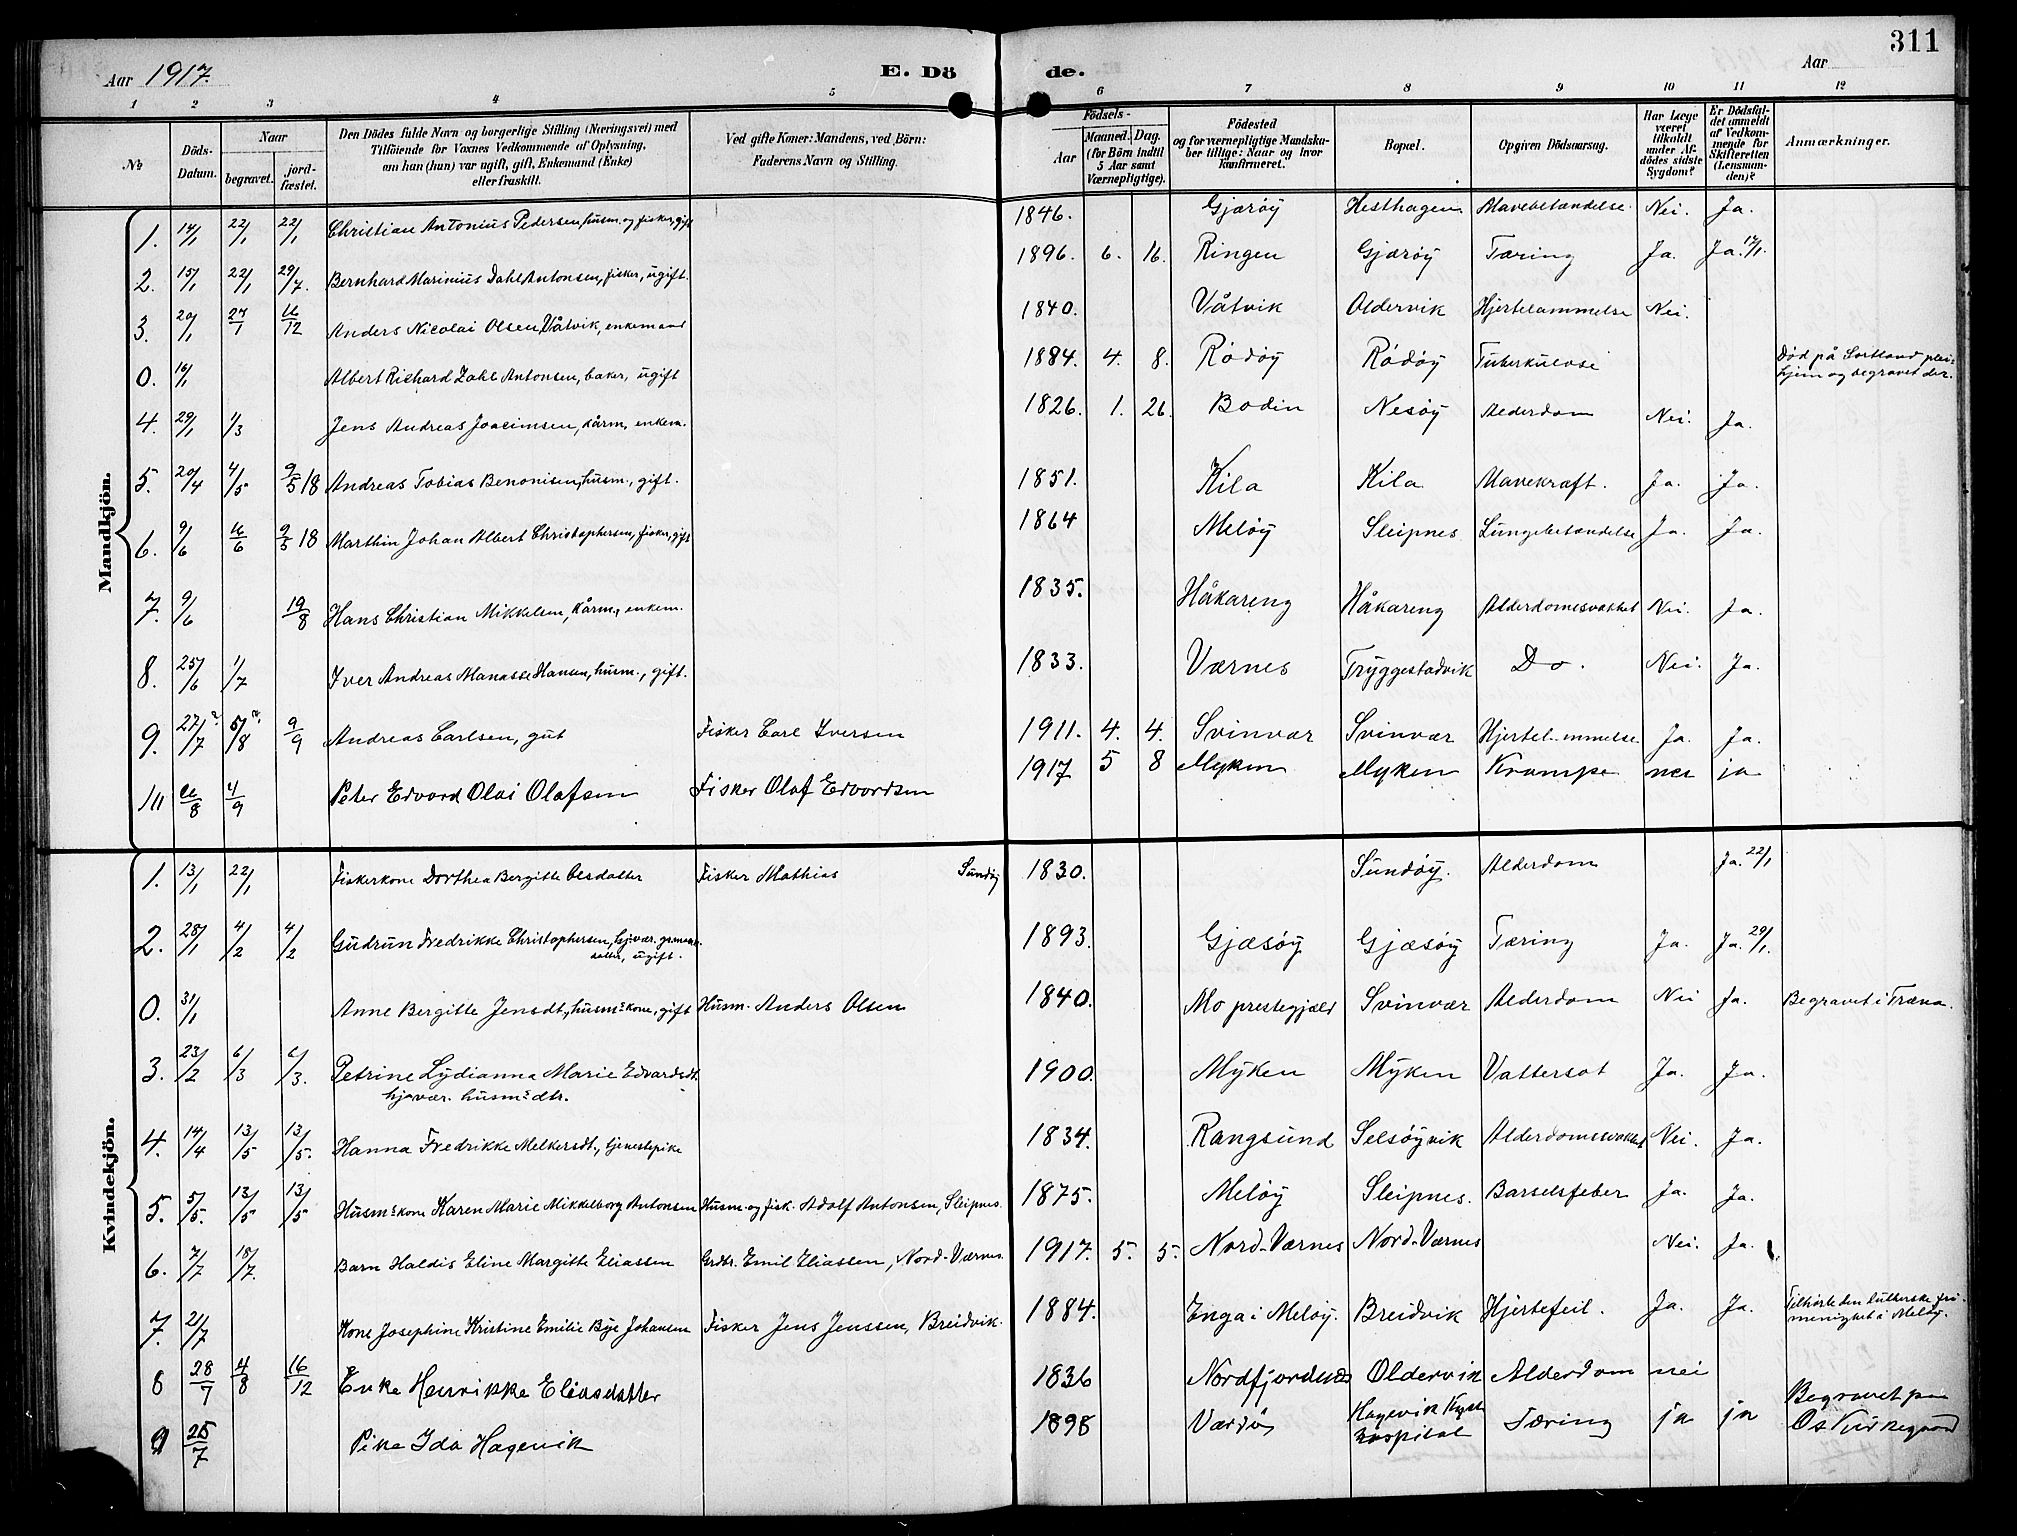 311
Aar 1917.
E. Dö de.
Aar
1 2 3 4 5 6 7 8 9 10 11 12
№
Döds-Datum.
Naar
begravet.
jord-fæstet.
Den Dödes fulde Navn og borgerlige Stilling (Næringsvei) med
Tilföiende for Voxnes Vedkommende af Oplysning,
om han (hun) var ugift, gift, Enkemand (Enke)
eller fraskilt.
Ved gifte Koner: Mandens, ved Börn:
Faderens Navn og Stilling.
Födsels-
Aar
Maaned. Dag.
(for Börn indtil
5 Aar samt
Værnepligtige).
Födested
og for værnepligtige Mandska-
ber tillige: Naar og hvor
konfirmeret.
Bopæl.
Opgiven Dödsaarsag.
Har Læge
været
tilkaldt
under Af-
dödes sidste
Sygdom?
Er Dödsfal-
det anmeldt
af Vedkom-
mende for
Skifteretten
(Lensman-
den)?
Anmærkninger.
Mandkjön.
1. 14/1 22/1 22/1 Christian Antonius Pedersen, husm. og fisker, gift 1846. Gjærøy Hesthagen Mavebetændelse. Nei. Ja.
2. 15/1 22/1 29/7. Bernhard Marinius Dahl Antonsen, fisker, ugift. 1896. 6. 16. Ringen Gjærøy Tæring Ja. Ja. 17/1.
3. 20/1 27/1 16/12 Anders Nicolai Olsen Våtvik, enkemand 1840. Våtvik Oldervik Hjertelammelse Nei.
0. 16/1 Albert Richard Zahl Antonsen, baker, ugift 1884. 4. 8. Rødøy Rødøy Tuberkulose Død på Sortland pleie-
hjem og begravet der.
4. 29/1 1/3 Jens Andreas Joacimsen, kårm, enkem. 1826. 1. 26. Bodin Nesøy Alderdom Nei. Ja.
5. 20/4 4/5 9/5 18 Andreas Tobias Benonisen, husm., gift. 1851. Kila Kila Mavekræft. Ja. Ja.
6. 9/6 16/6 9/5 18 Marthin Johan Albert Christophersen, fisker, gift 1864 Meløy Sleipnes Lungebetændelse Ja. Ja.
7. 9/6 19/8 Hans Christian Mikkelsen, kårm., enkem. 1835. Håkareng Håkareng Alderdomssvakhet Nei. Ja.
8. 25/6 1/7 Iver Andreas Manasse Hansen, husm., gift. 1833. Værnes Tryggestadvik Do. Nei. Ja.
9. 27/7 5/8 9/9 Andreas Carlsen, gut Fisker Carl Iversen 1911. 4. 4. Svinvær Svinvær Hjertel-mmelse Ja. Ja.
10 16/8 4/9 Peter Edvard Olai Olafsen Fisker Olaf Edvardsen 1917 5 8 Myken Myken Krampe nei ja
Kvindekjön.
1. 13/1 22/1 Fiskerkone Dorthea Bergitte Olsdatter Fisker Mathias Sundøy 1830. Sundøy. Alderdom Ja. 22/1
2. 28/1 4/2 4/2 Gudrun Fredrikke Christophersen, hj.vær.
datter, ugift. 1893. Gjæsøy Gjæsøy Tæring Ja. Ja. 29/1.
0. 31/1 Anne Bergitte Jensdt., husm.s kone, gift Husm. Anders Olsen 1840. Mo prestegjæld Svinvær Alderdom Nei Ja. Begravet i Træna.
3. 23/2 6/3 6/3. Petrine Lydianna Marie Edvardsdt.
hjevær. husm.s dtr. 1900. Myken Myken Vattersot Ja. Ja.
4. 14/4 13/5 13/5. Hanna Fredrikke Melkersdt., tjenestepike 1834. Rangsund Selsøyvik Alderdomssvakhet Nei. Ja.
5. 5/5. 13/5 13/5 Husm.s kone Karen Marie Mikkelborg Antonsen Husm. og fisk. Adolf Antonsen, Sleipnes. 1875. Meløy Sleipnes. Barselsfeber Ja. Ja.
6. 7/7 18/7. Barn Haldis Eline Margitte Eliassen Grdbr. Emil Eliassen, Nord-Værnes. 1917. 5. 5. Nord-Værnes Nord-Værnes Nei. Ja.
7. 21/7 Kone Josephine Kristine Emilie Bye Johansen Fisker Jens Jenssen, Breidvik. 1884. Enga i Meløy. Breidvik Hjertefeil. Ja. Ja. Tilhørte den lutherske fri-
menighet i Meløy.
8 28/7 4/8 16/12 Enke Henrikke Eliasdatter 1836 Nordfjordnes Oldervik Alderdom nei
9 25/7 Pike Ida Hagevik 1898 Værdø Hagevik Kyst
hospital Tæring ja ja Begravet paa
Os Kirkegaard